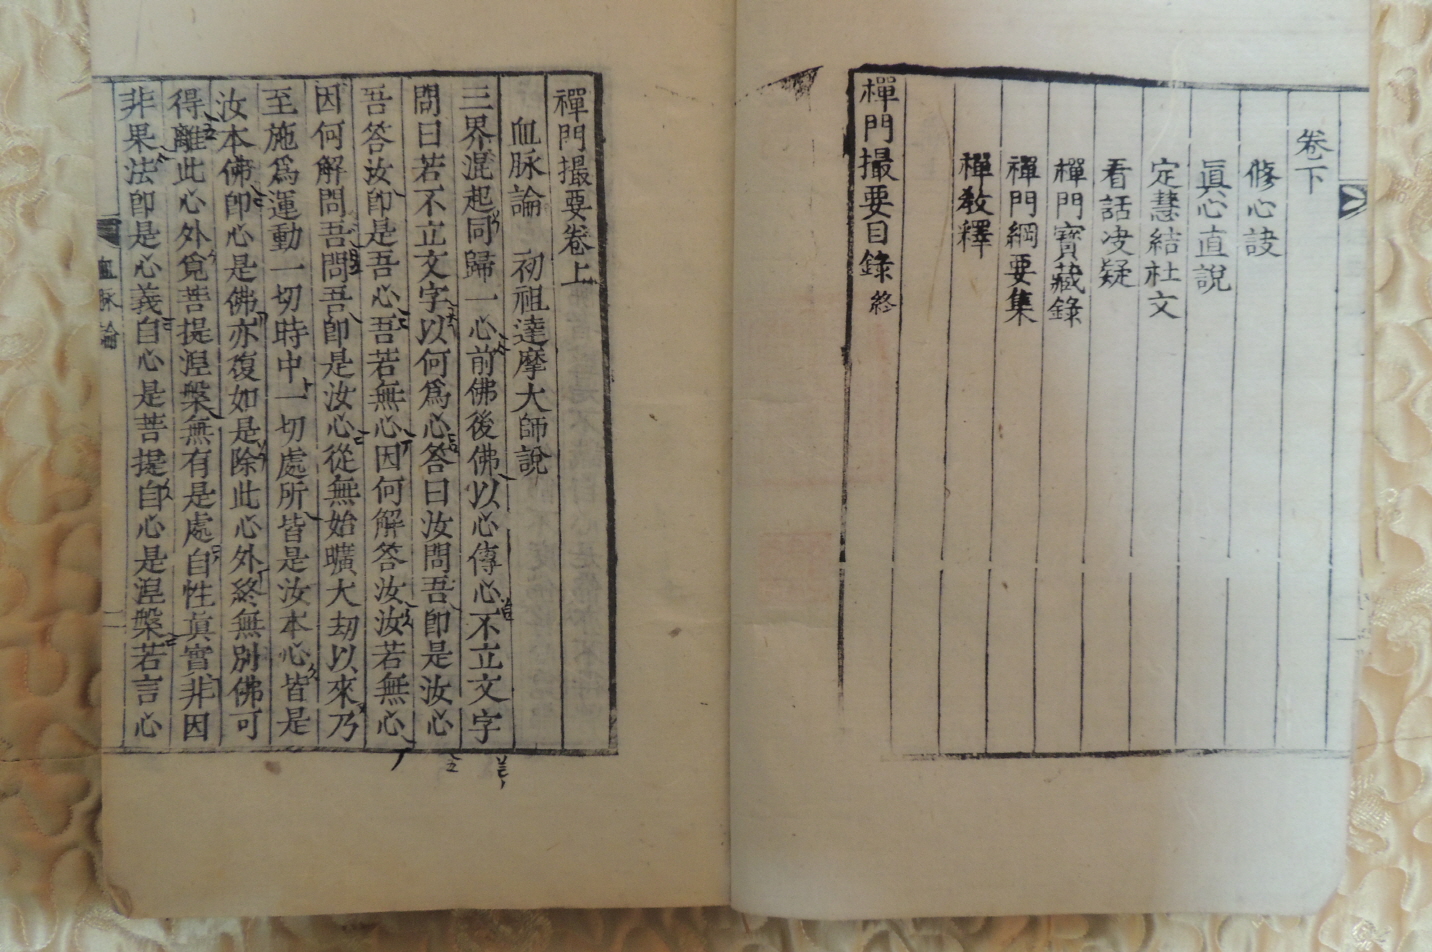 卷下
修心訣
眞心直說
定慧結社文
看話决疑
禪門寶藏錄
禪門綱要集
禪敎釋
禪門撮要目錄 終
禪門撮要卷上
血脉論 初祖達摩大師說
三界混起同歸一心前佛後佛以心傳心不立文字
問曰若不立文字以何爲心答曰汝問吾卽是汝心
吾答汝卽是吾心吾若無心因何解答汝汝若無心
因何解問吾問吾卽是汝心從無始曠大劫以來乃
至施爲運動一切時中一切處所皆是汝本心皆是
汝本佛卽心是佛亦復如是除此心外終無別佛可
得離此心外覓菩提涅槃無有是處自性眞實非因
非果法卽是心義自心是菩提自心是涅槃若言心
血脉論